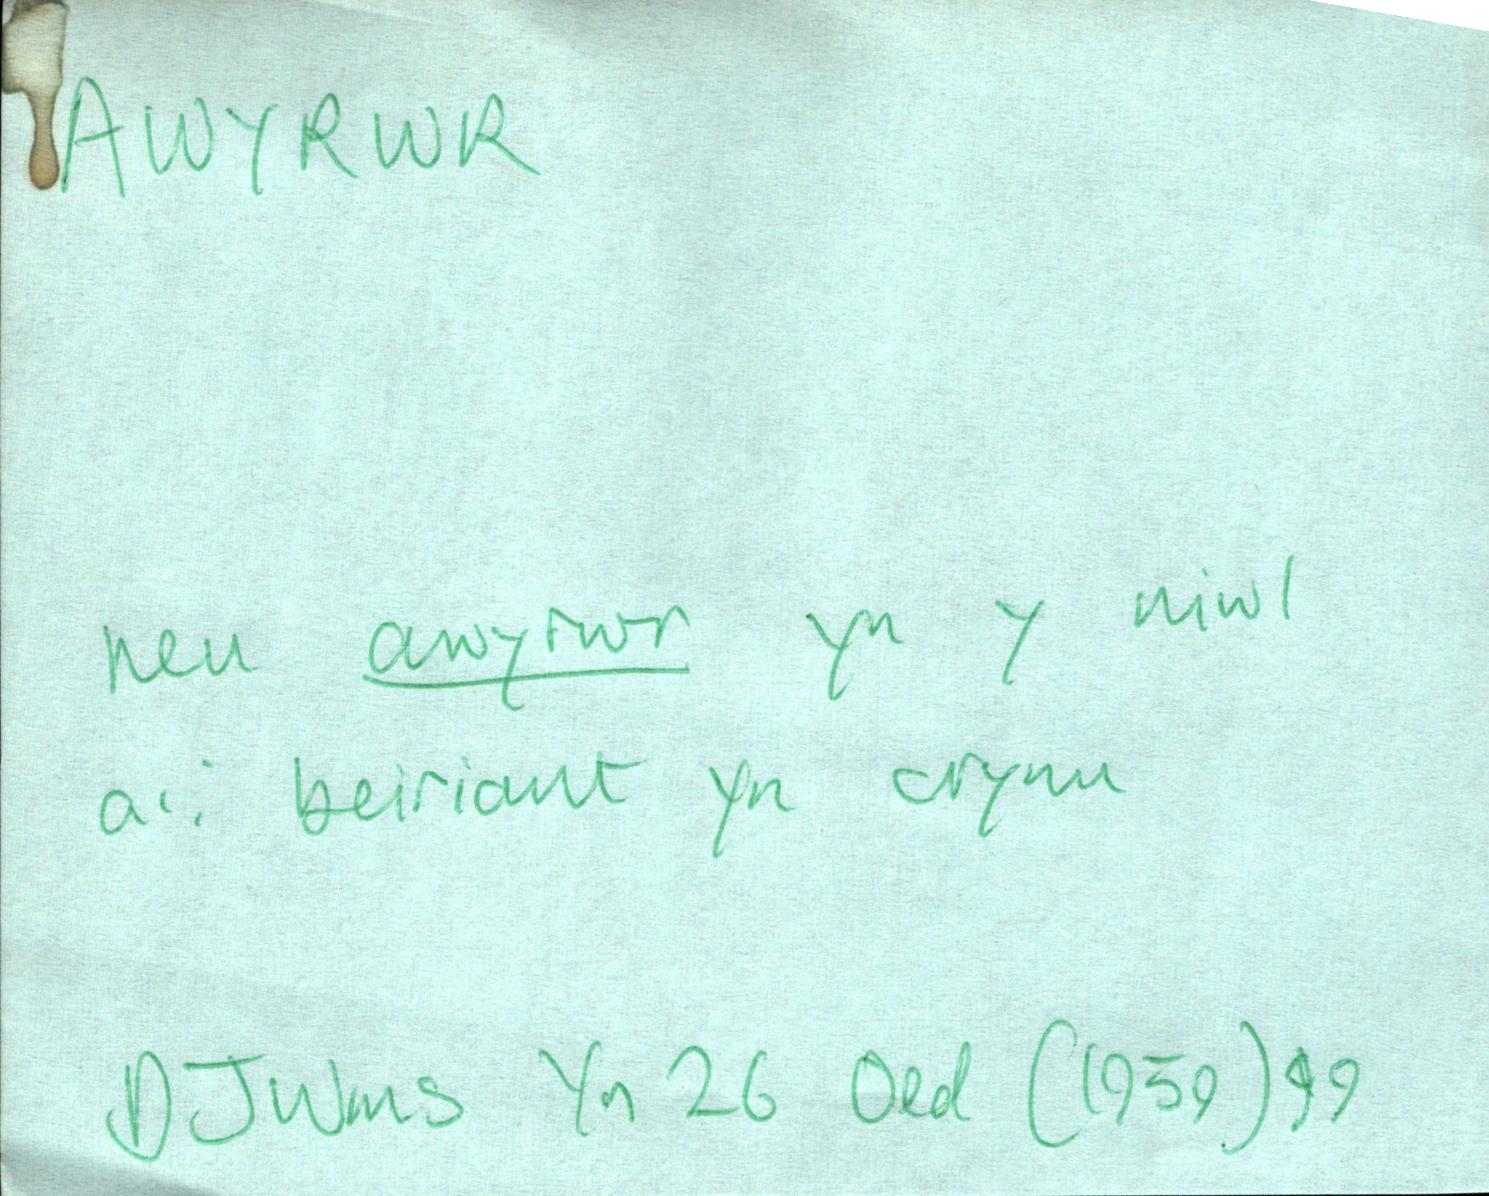 AWYRWR
neu awyrwr yn y niwl
a'i beiriant yn crynu
DJWms Yn 26 Oed (1959) 99